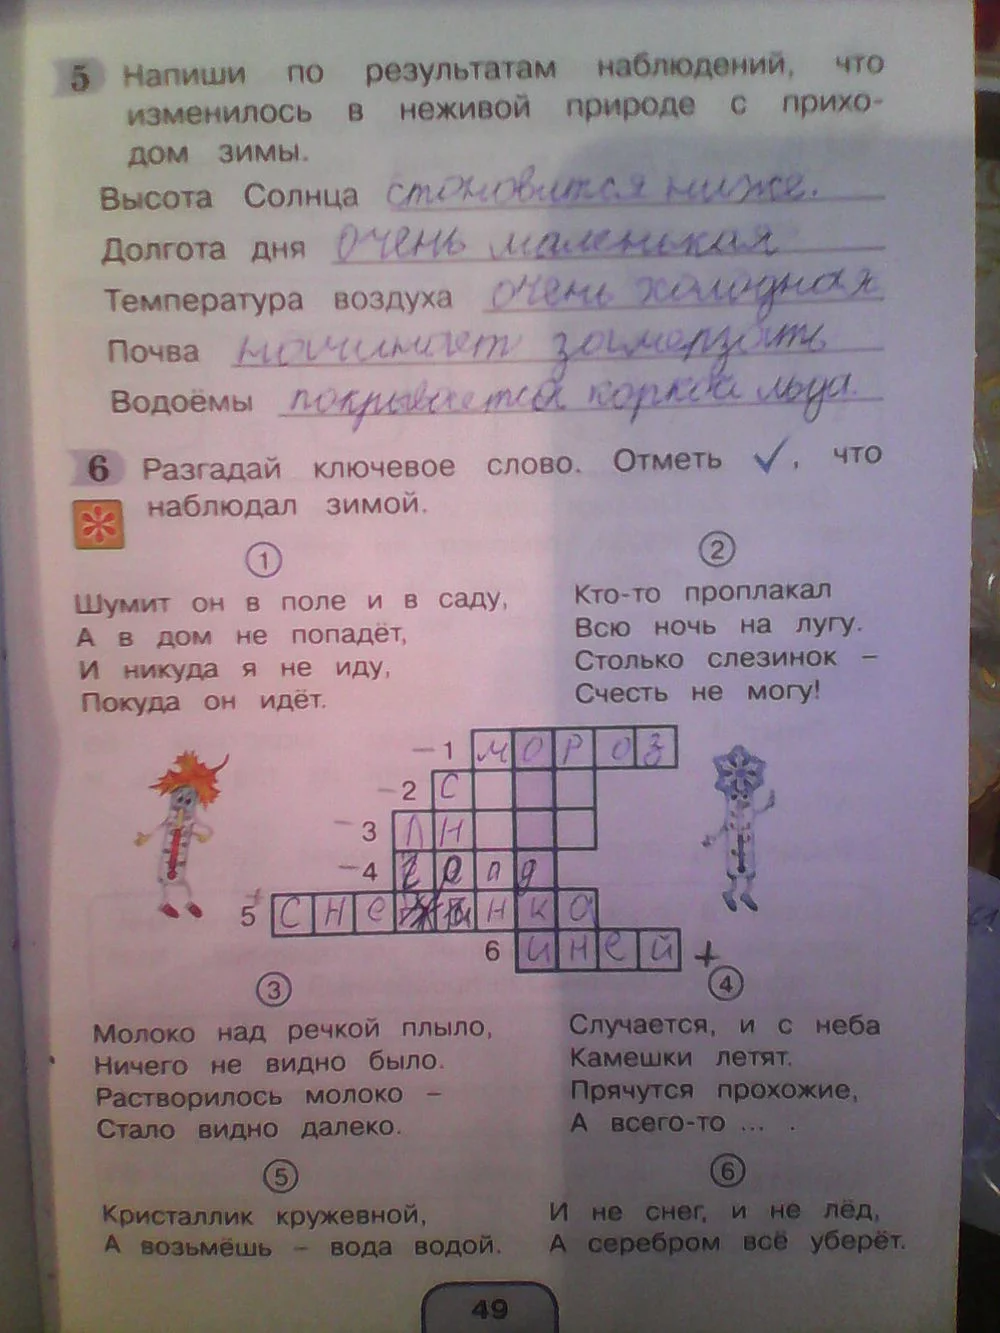 5 Напиши по результатам наблюдений, что
изменилось в неживой природе с прихо-
дом зимы.
Высота Солнца становится ниже.
Долгота дня очень маленькая
Температура воздуха очень холодная
Почва начинает замерзать
Водоёмы покрывается коркой льда.
6 Разгадай ключевое слово. Отметь ✓, что
наблюдал зимой.
1
Шумит он в поле и в саду,
А в дом не попадёт,
И никуда я не иду,
Покуда он идёт.
2
Кто-то проплакал
Всю ночь на лугу.
Столько слезинок –
Счесть не могу!
– 1 мороз
– 2 с
– 3 лн
– 4 град
+ 5 снежинка
6 иней +
3
Молоко над речкой плыло,
Ничего не видно было.
Растворилось молоко –
Стало видно далеко.
4
Случается, и с неба
Камешки летят.
Прячутся прохожие,
А всего-то ... .
5
Кристаллик кружевной,
А возьмёшь – вода водой.
6
И не снег, и не лёд,
А серебром всё уберёт.
49